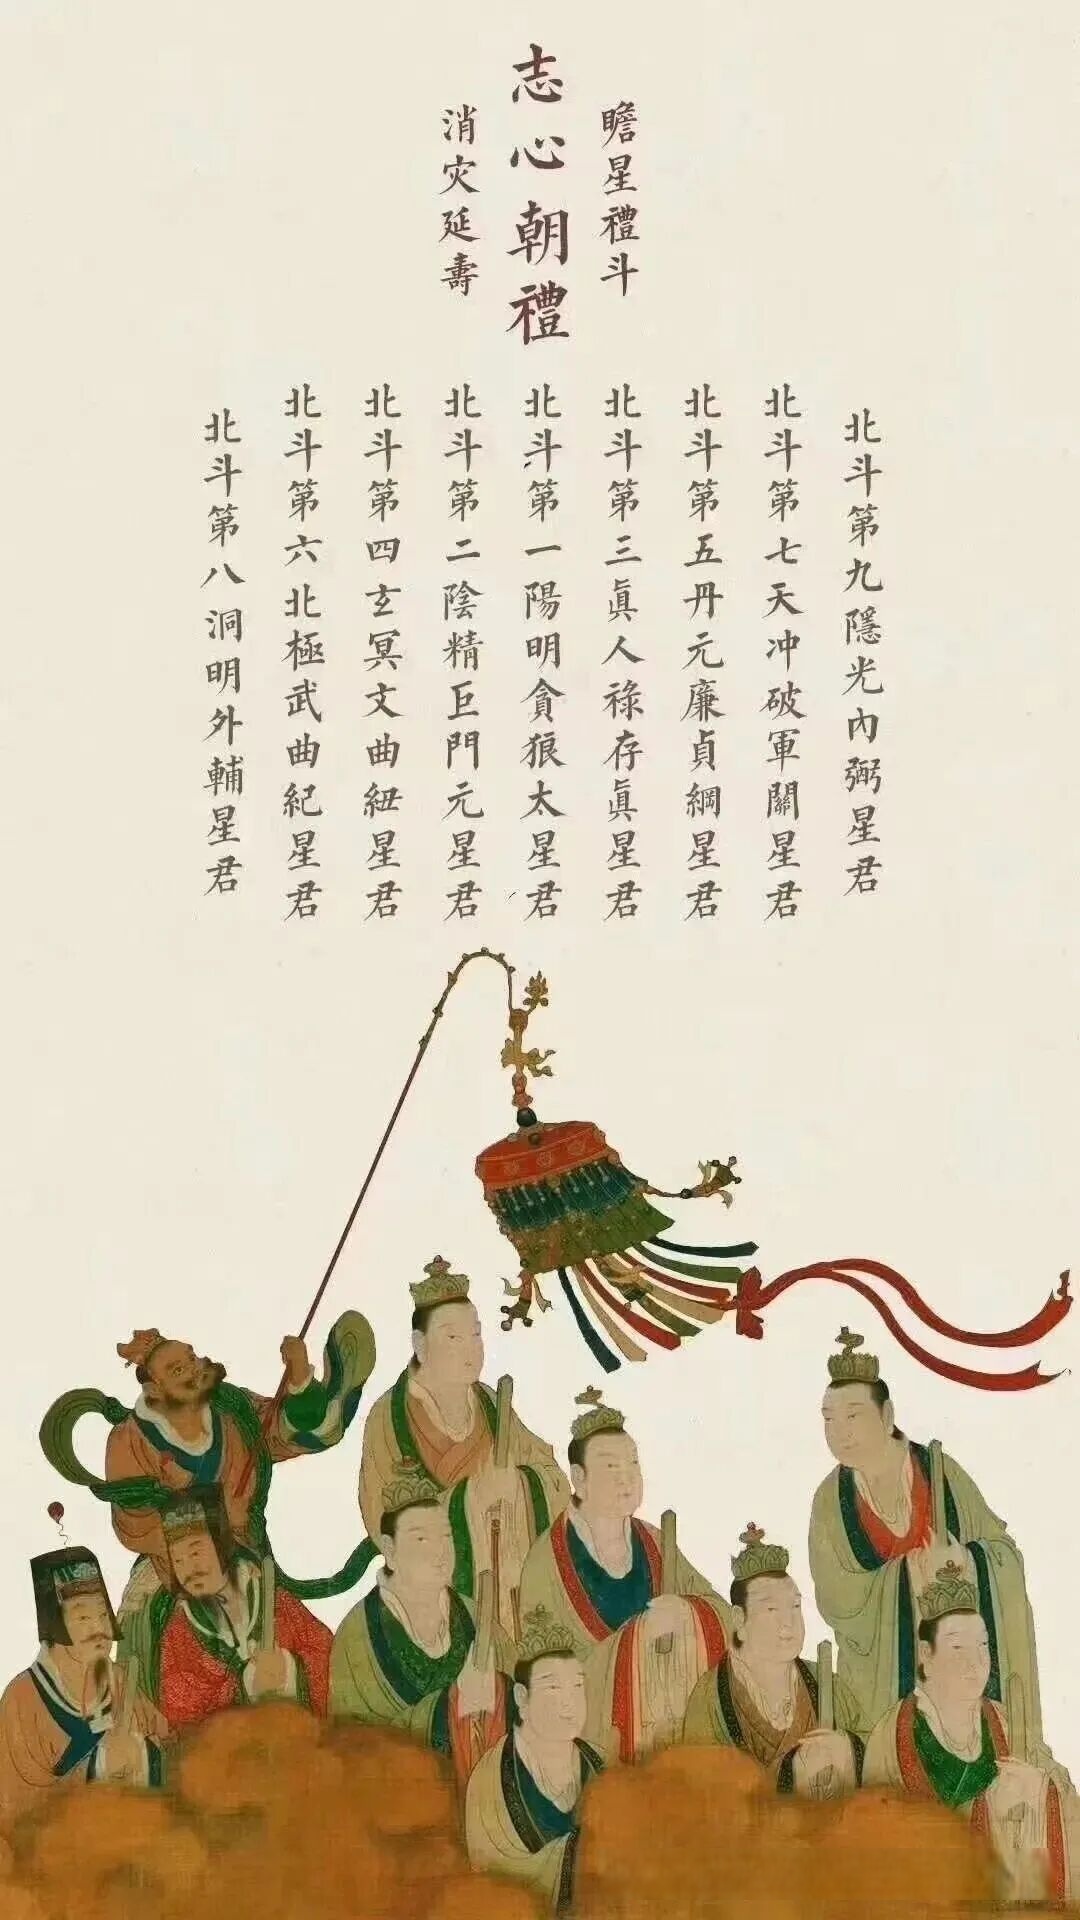 瞻星禮斗
志心朝禮
消灾延壽
北斗第九隱光內弼星君
北斗第七天冲破軍關星君
北斗第五丹元廉貞綱星君
北斗第三真人祿存真星君
北斗第一陽明貪狼太星君
北斗第二陰精巨門元星君
北斗第四玄冥文曲紐星君
北斗第六北極武曲紀星君
北斗第八洞明外輔星君